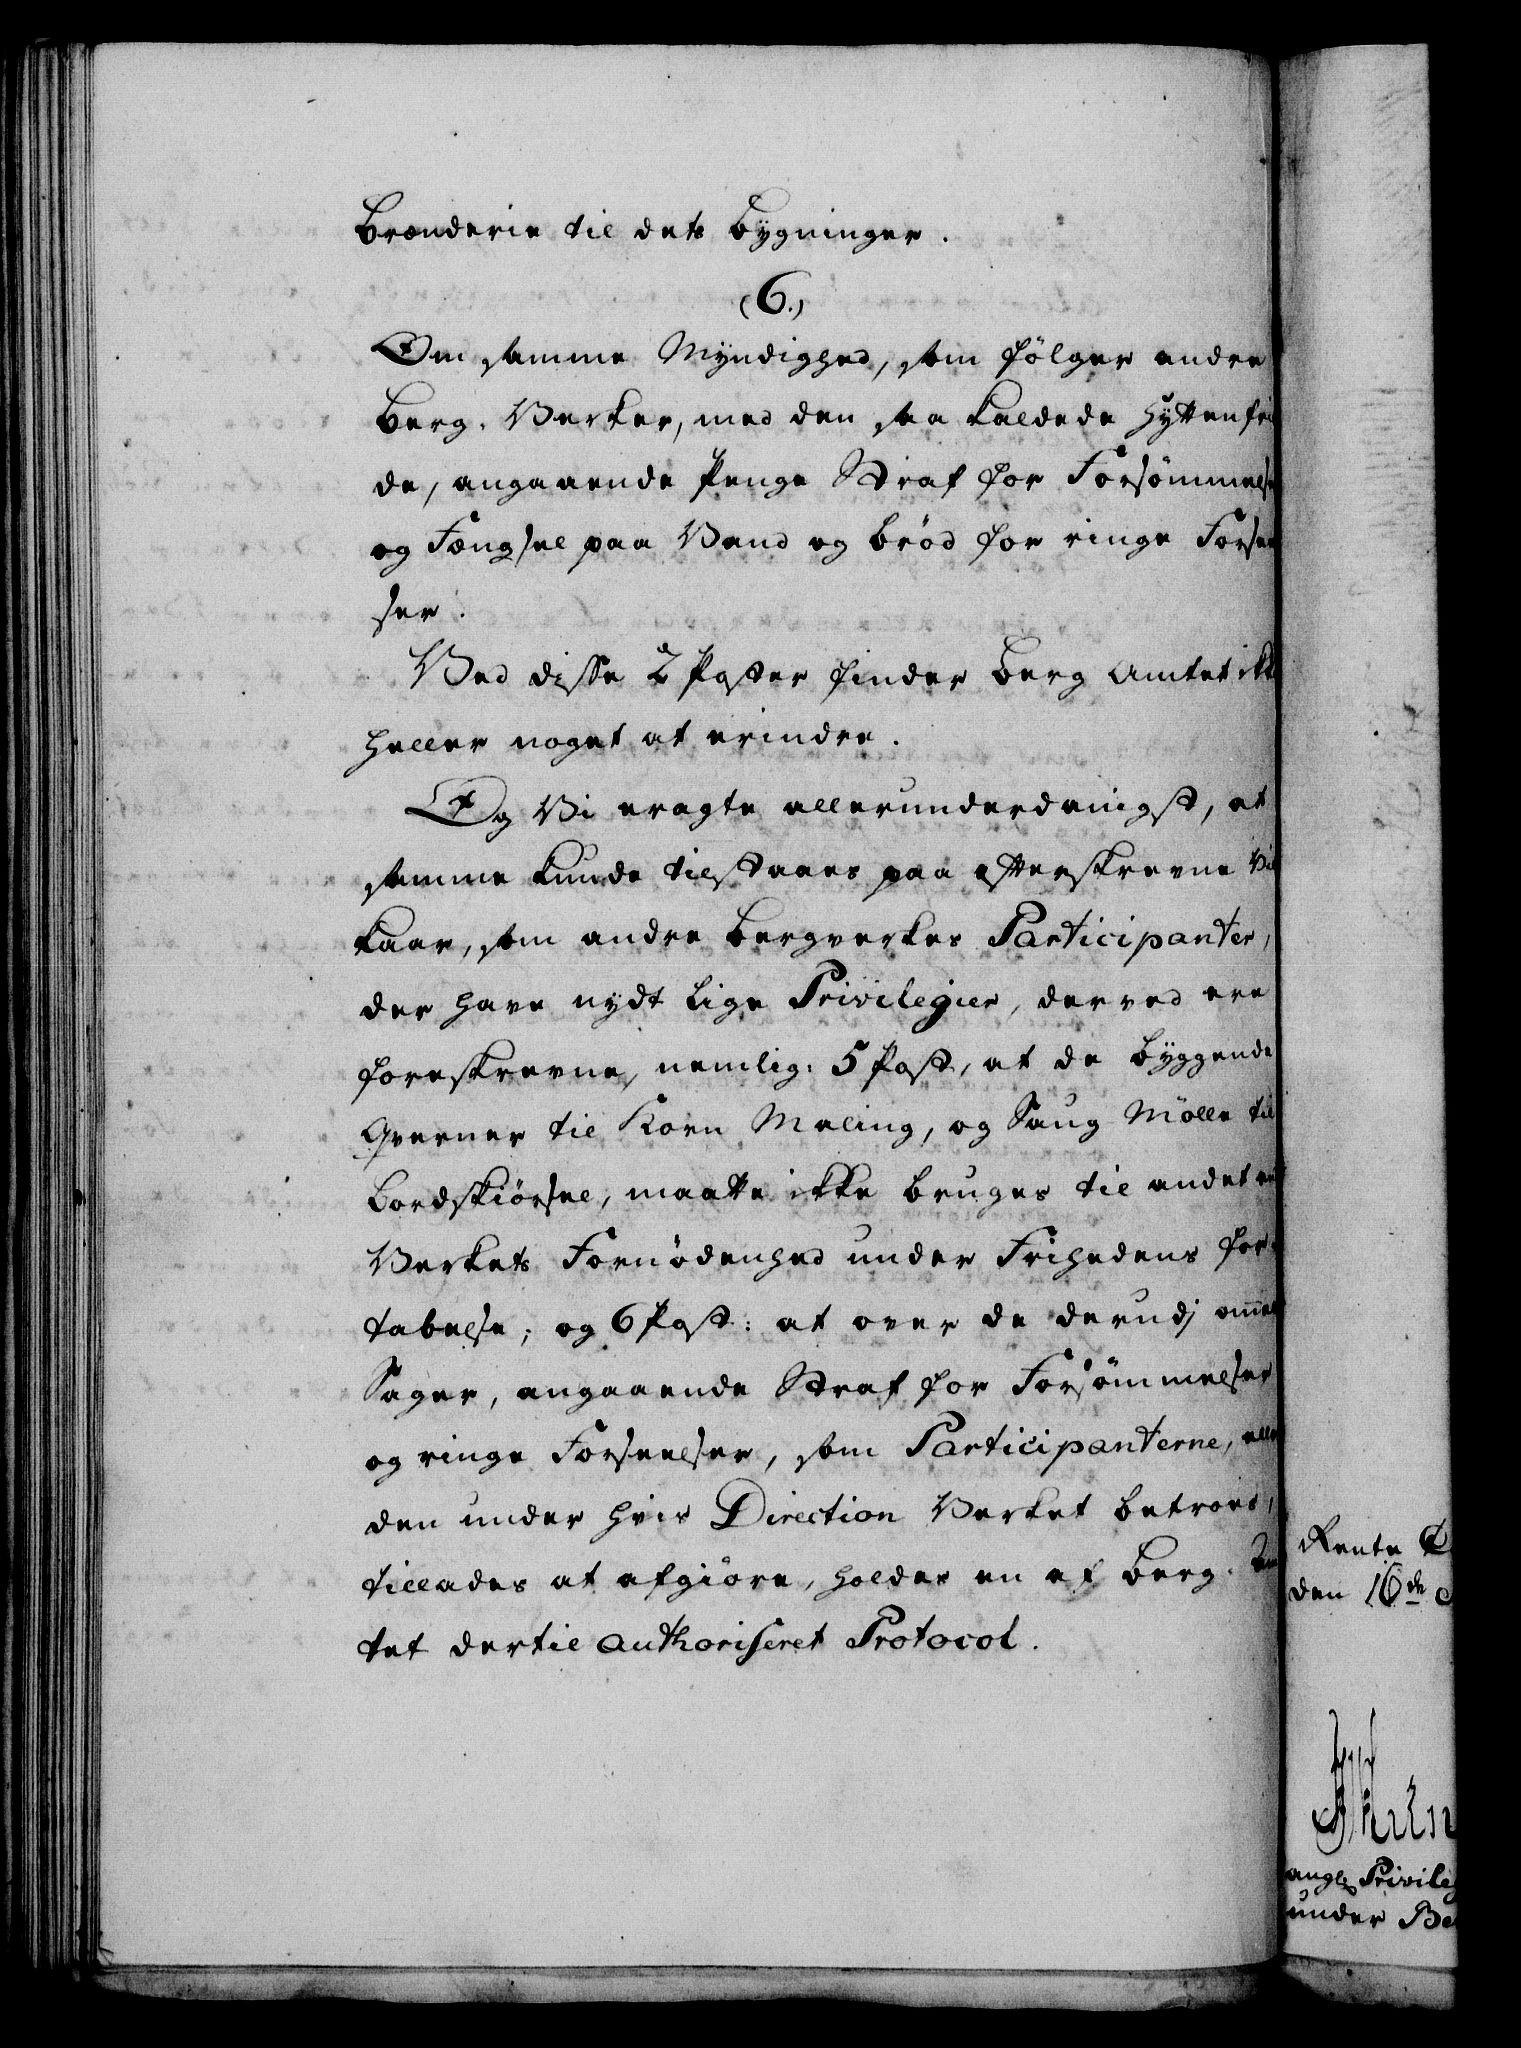 Brænderie til dets Bygninger.
(6.)
Om samme Myndighed, som følger andre
Berg-Verker, med den saa kaldede Hyttenfri
de, angaaende Penge Straf for Forsømmelse
og Fængsel paa Vand og Brød for ringe Forseel
ser.
Ved disse 2 Poster finder Berg Amtet ikke
heller noget at erindre.
Og Vi eragte allerunderdanigst, at
samme kunde tilstaaes paa efterskrevne Vil
kaar, som andre Bergverkes Participanter,
der have nydt lige Privilegier, derved ere
foreskrevne, nemlig: 5 Post, at de byggende
Qverner til Korn Maling, og Saug Mölle til
Bordskiørsel, maatte ikke bruges til andet en
Verkets Fornødenhed under Frihedens for-
tabelse; og 6 Post: at over de derudj omel
Sager, angaaende Straf for Forsømmelser
og ringe Forseelser, som Participanterne, eller
den under hvis Direction Verket betroes,
tillades at afgiøre, holdes en af Berg-Am
tet dertil authoriseret Protocol.
Rente
den 16de
angl. Privileg
under Be